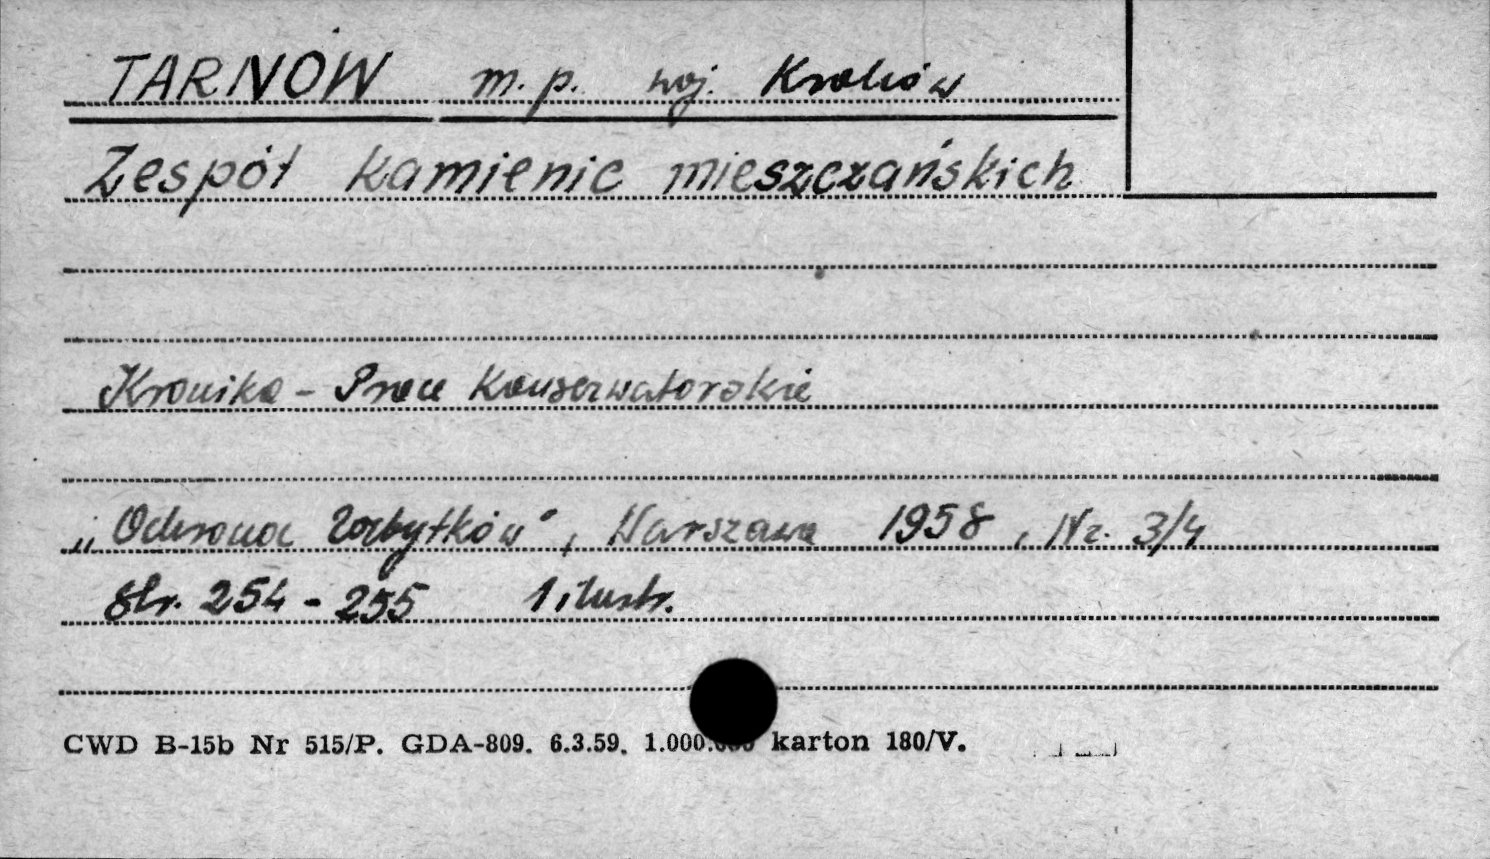 TARNÓW m. p. woj. Kraków
Zespół kamienic mieszczańskich
Kronika - Prace Konserwatorskie
„Ochrona Zabytków", Warszawa 1958, Nr. 3/4
Str. 254 - 255 1 ilustr.
CWD B-15b Nr 515/P. GDA-809. 6.3.59. 1.000.000 karton 180/V.